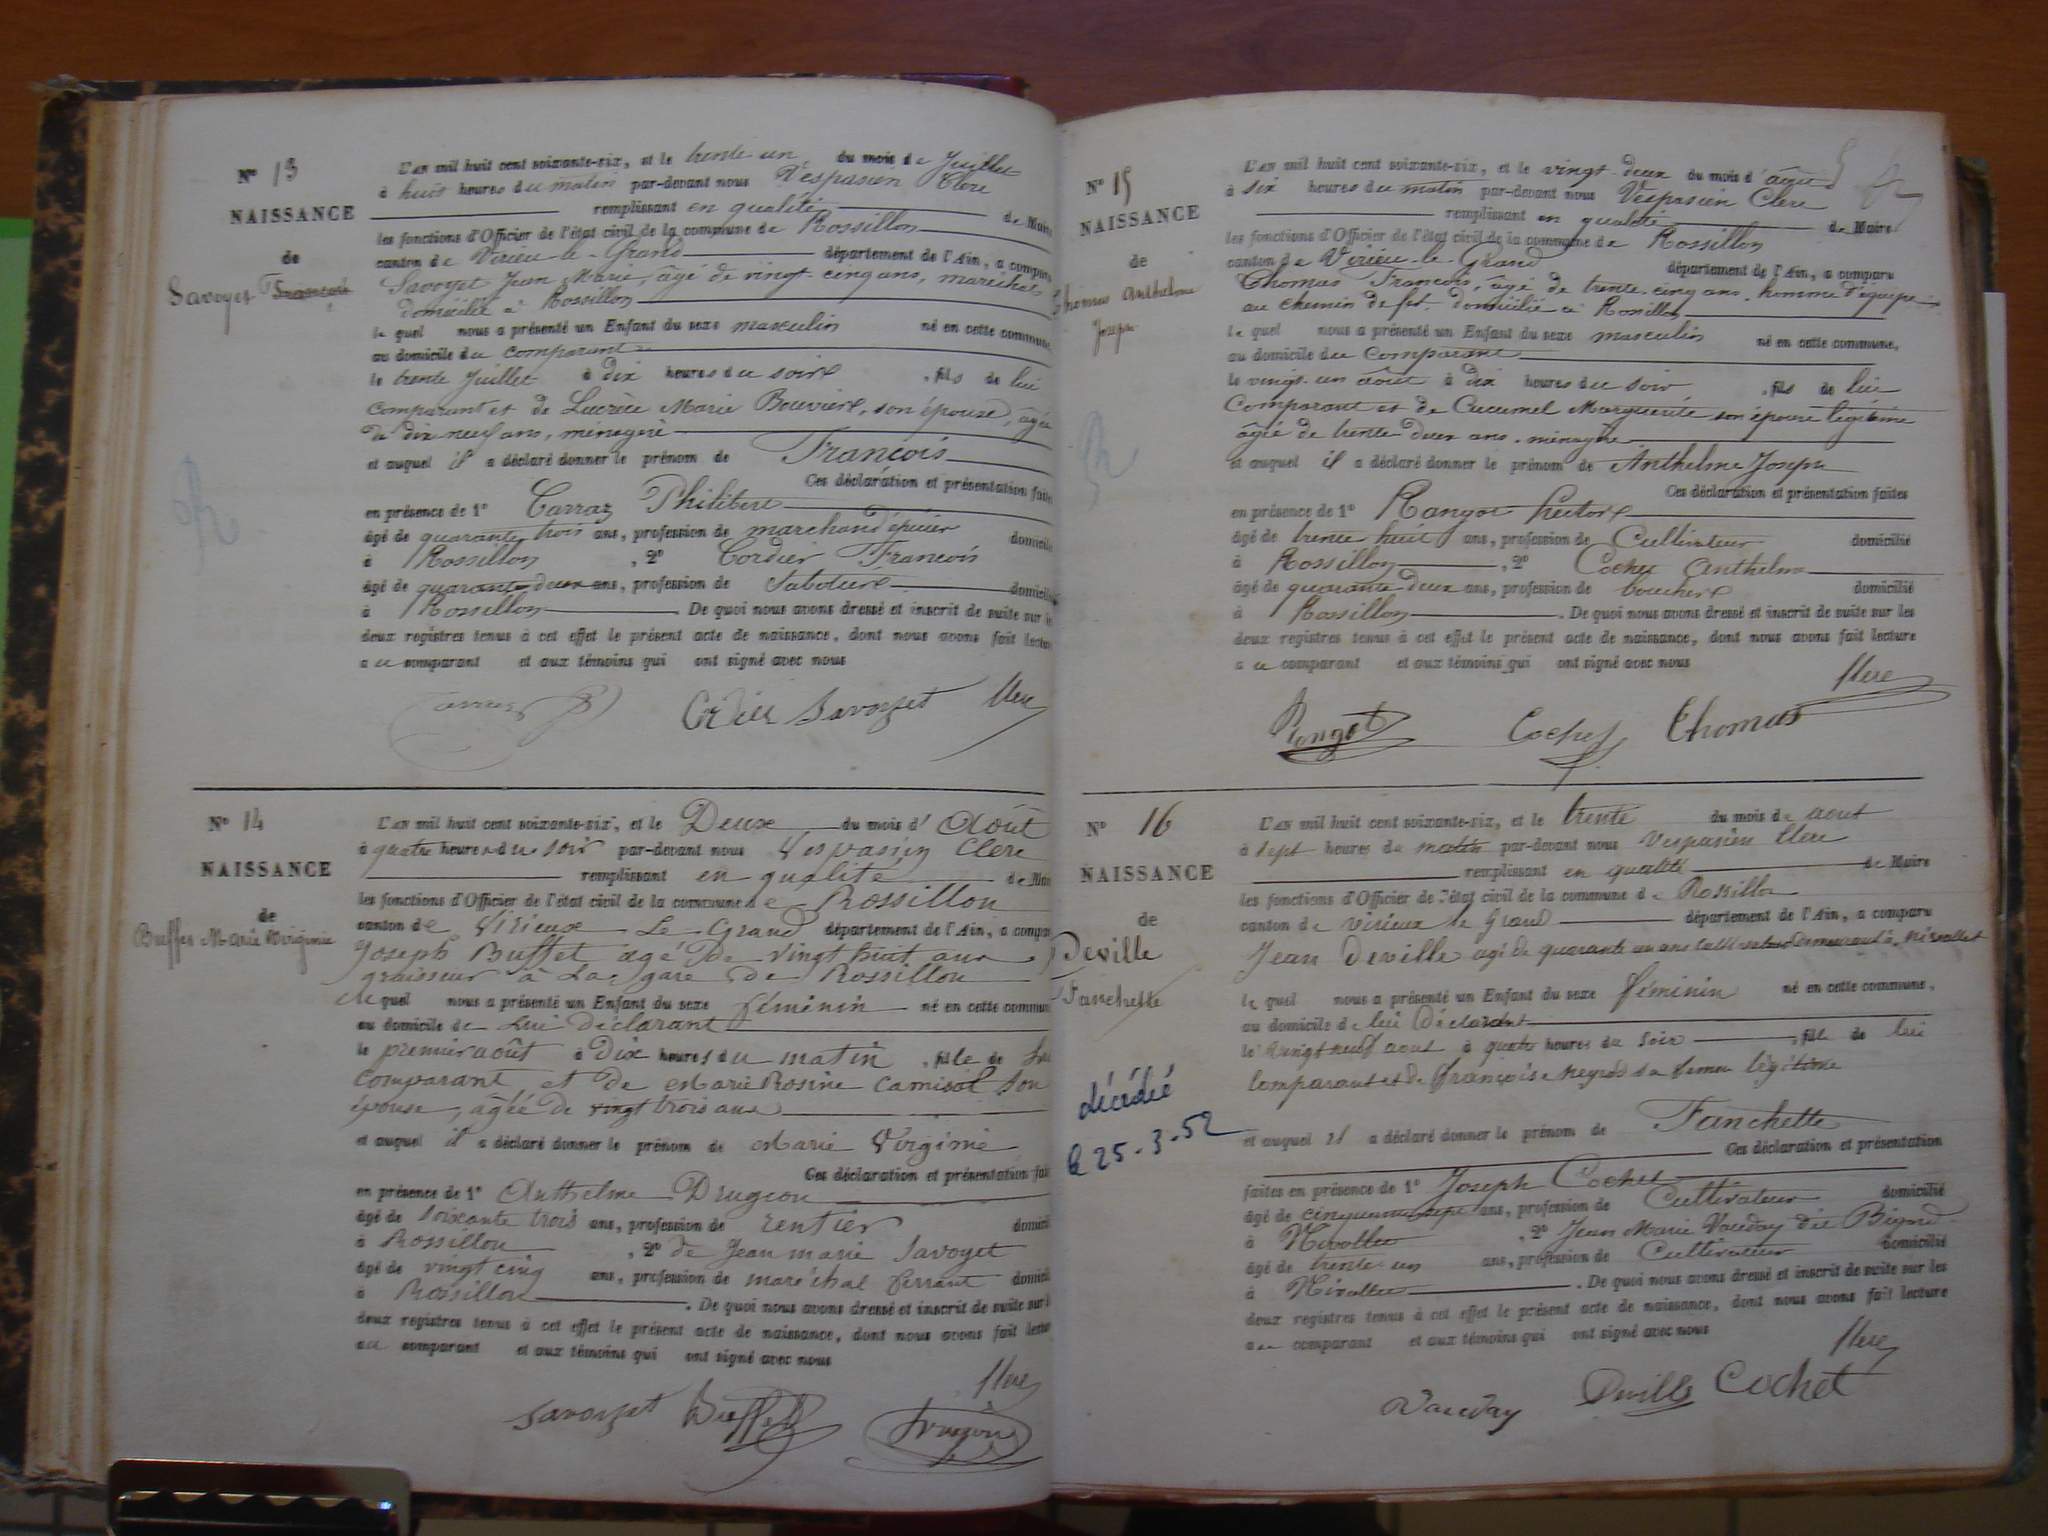 N° 13
NAISSANCE
de
Savoyet François
L'an mil huit cent soixante-six, et le trente un du mois de Juillet
à huit heures du matin par-devant nous Vespasien Clerc
remplissant en qualité de Maire
les fonctions d'Officier de l'état civil de la commune de Rossillon
canton de Virieu-le-Grand département de l'Ain, a comparu
Savoyet Jean Marie, âgé de vingt cinq ans, maréchal
domicilié à Rossillon
le quel nous a présenté un Enfant du sexe masculin né en cette commune
au domicile du comparant
le trente Juillet à dix heures du soir, fils de lui
comparant et de Lucrèce Marie Bouvier, son épouse, âgée
de dix neuf ans, ménagère
et auquel il a déclaré donner le prénom de François
Ces déclaration et présentation faites
en présence de 1° Carraz Philibert
âgé de quarante trois ans, profession de marchand épicier domicilié
à Rossillon, 2° Cordier François
âgé de quarante deux ans, profession de Sabotier domicilié
à Rossillon. De quoi nous avons dressé et inscrit de suite sur les
deux registres tenus à cet effet le présent acte de naissance, dont nous avons fait lecture
au comparant et aux témoins qui ont signé avec nous
Cordier Savoyet Clerc
N° 14
NAISSANCE
de
Buffet Marie Virginie
L'an mil huit cent soixante-six, et le Deux du mois d'Août
à quatre heures du soir par-devant nous Vespasien Clerc
remplissant en qualité de Maire
les fonctions d'Officier de l'état civil de la commune de Rossillon
canton de Virieux-Le-Grand département de l'Ain, a comparu
Joseph Buffet âgé de vingt huit ans
graisseur à La gare de Rossillon
lequel nous a présenté un Enfant du sexe féminin né en cette commune
au domicile de Lui déclarant
le premier août à Dix heures du matin, fille de Lui
comparant, et de Marie Rosine Camisol Son
épouse, âgée de vingt trois ans
et auquel il a déclaré donner le prénom de Marie Virginie
Ces déclaration et présentation faites
en présence de 1° Anthelme Drugeon
âgé de soixante trois ans, profession de rentier domicilié
à Rossillon, 2° de Jean marie Savoyet
âgé de vingt cinq ans, profession de maréchal ferrant domicilié
à Rossillon. De quoi nous avons dressé et inscrit de suite sur les
deux registres tenus à cet effet le présent acte de naissance, dont nous avons fait lecture
au comparant et aux témoins qui ont signé avec nous
Clerc
Savoyet Buffet Drugeon
N° 15
NAISSANCE
de
Thomas Anthelme
Joseph
L'an mil huit cent soixante-six, et le vingt-deux du mois d'août
à six heures du matin par-devant nous Vespasien Clerc
remplissant en qualité de Maire
les fonctions d'Officier de l'état civil de la commune de Rossillon
canton de Virieu-le-Grand département de l'Ain, a comparu
Thomas François, âgé de trente-cinq ans, homme d'équipe
au chemin de fer, domicilié à Rossillon
le quel nous a présenté un Enfant du sexe masculin né en cette commune,
au domicile du Comparant
le vingt-un août à dix heures du soir, fils de lui
Comparant et de Cucumel Marguerite son épouse légitime
âgée de trente-deux ans, ménagère
et auquel il a déclaré donner le prénom de Anthelme Joseph
Ces déclaration et présentation faites
en présence de 1° Rangot hector
âgé de trente huit ans, profession de Cultivateur domicilié
à Rossillon, 2° Cochet Anthelme
âgé de quarante-deux ans, profession de boucher domicilié
à Rossillon. De quoi nous avons dressé et inscrit de suite sur les
deux registres tenus à cet effet le présent acte de naissance, dont nous avons fait lecture
au comparant et aux témoins qui ont signé avec nous
Clerc
Rongot Cochet Thomas
N° 16
NAISSANCE
de
Deville
Fanchette
décédée
le 25-3-52
L'an mil huit cent soixante-six, et le trente du mois de aout
à sept heures du matin par-devant nous Vespasien Clerc
remplissant en qualité de Maire
les fonctions d'Officier de l'état civil de la commune de Rossillon
canton de Virieux le Grand département de l'Ain, a comparu
Jean Deville agé de quarante un ans cultivateur demeurant à Nivollet
le quel nous a présenté un Enfant du sexe féminin né en cette commune,
au domicile de lui Déclarant
le vingt neuf aout à quatre heures du soir, fille de lui
Comparant et de françoise negros sa femme légitime
et auquel il a déclaré donner le prénom de Fanchette
Ces déclaration et présentation
faites en présence de 1° Joseph Cochet
âgé de cinquante sept ans, profession de Cultivateur domicilié
à Nivollet, 2° Jean Marie Vauday dit Bigard
âgé de trente-un ans, profession de Cultivateur domicilié
à Nivollet. De quoi nous avons dressé et inscrit de suite sur les
deux registres tenus à cet effet le présent acte de naissance, dont nous avons fait lecture
au comparant et aux témoins qui ont signé avec nous
Clerc
Vauday Deville Cochet